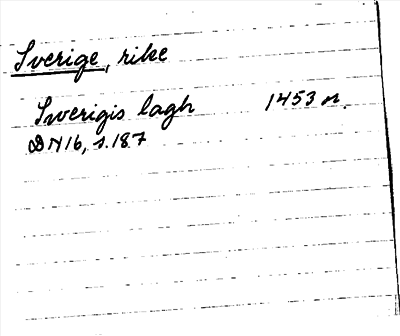 Sverige, rike
Swerigis lagh 1453 n.
DN16, s.187